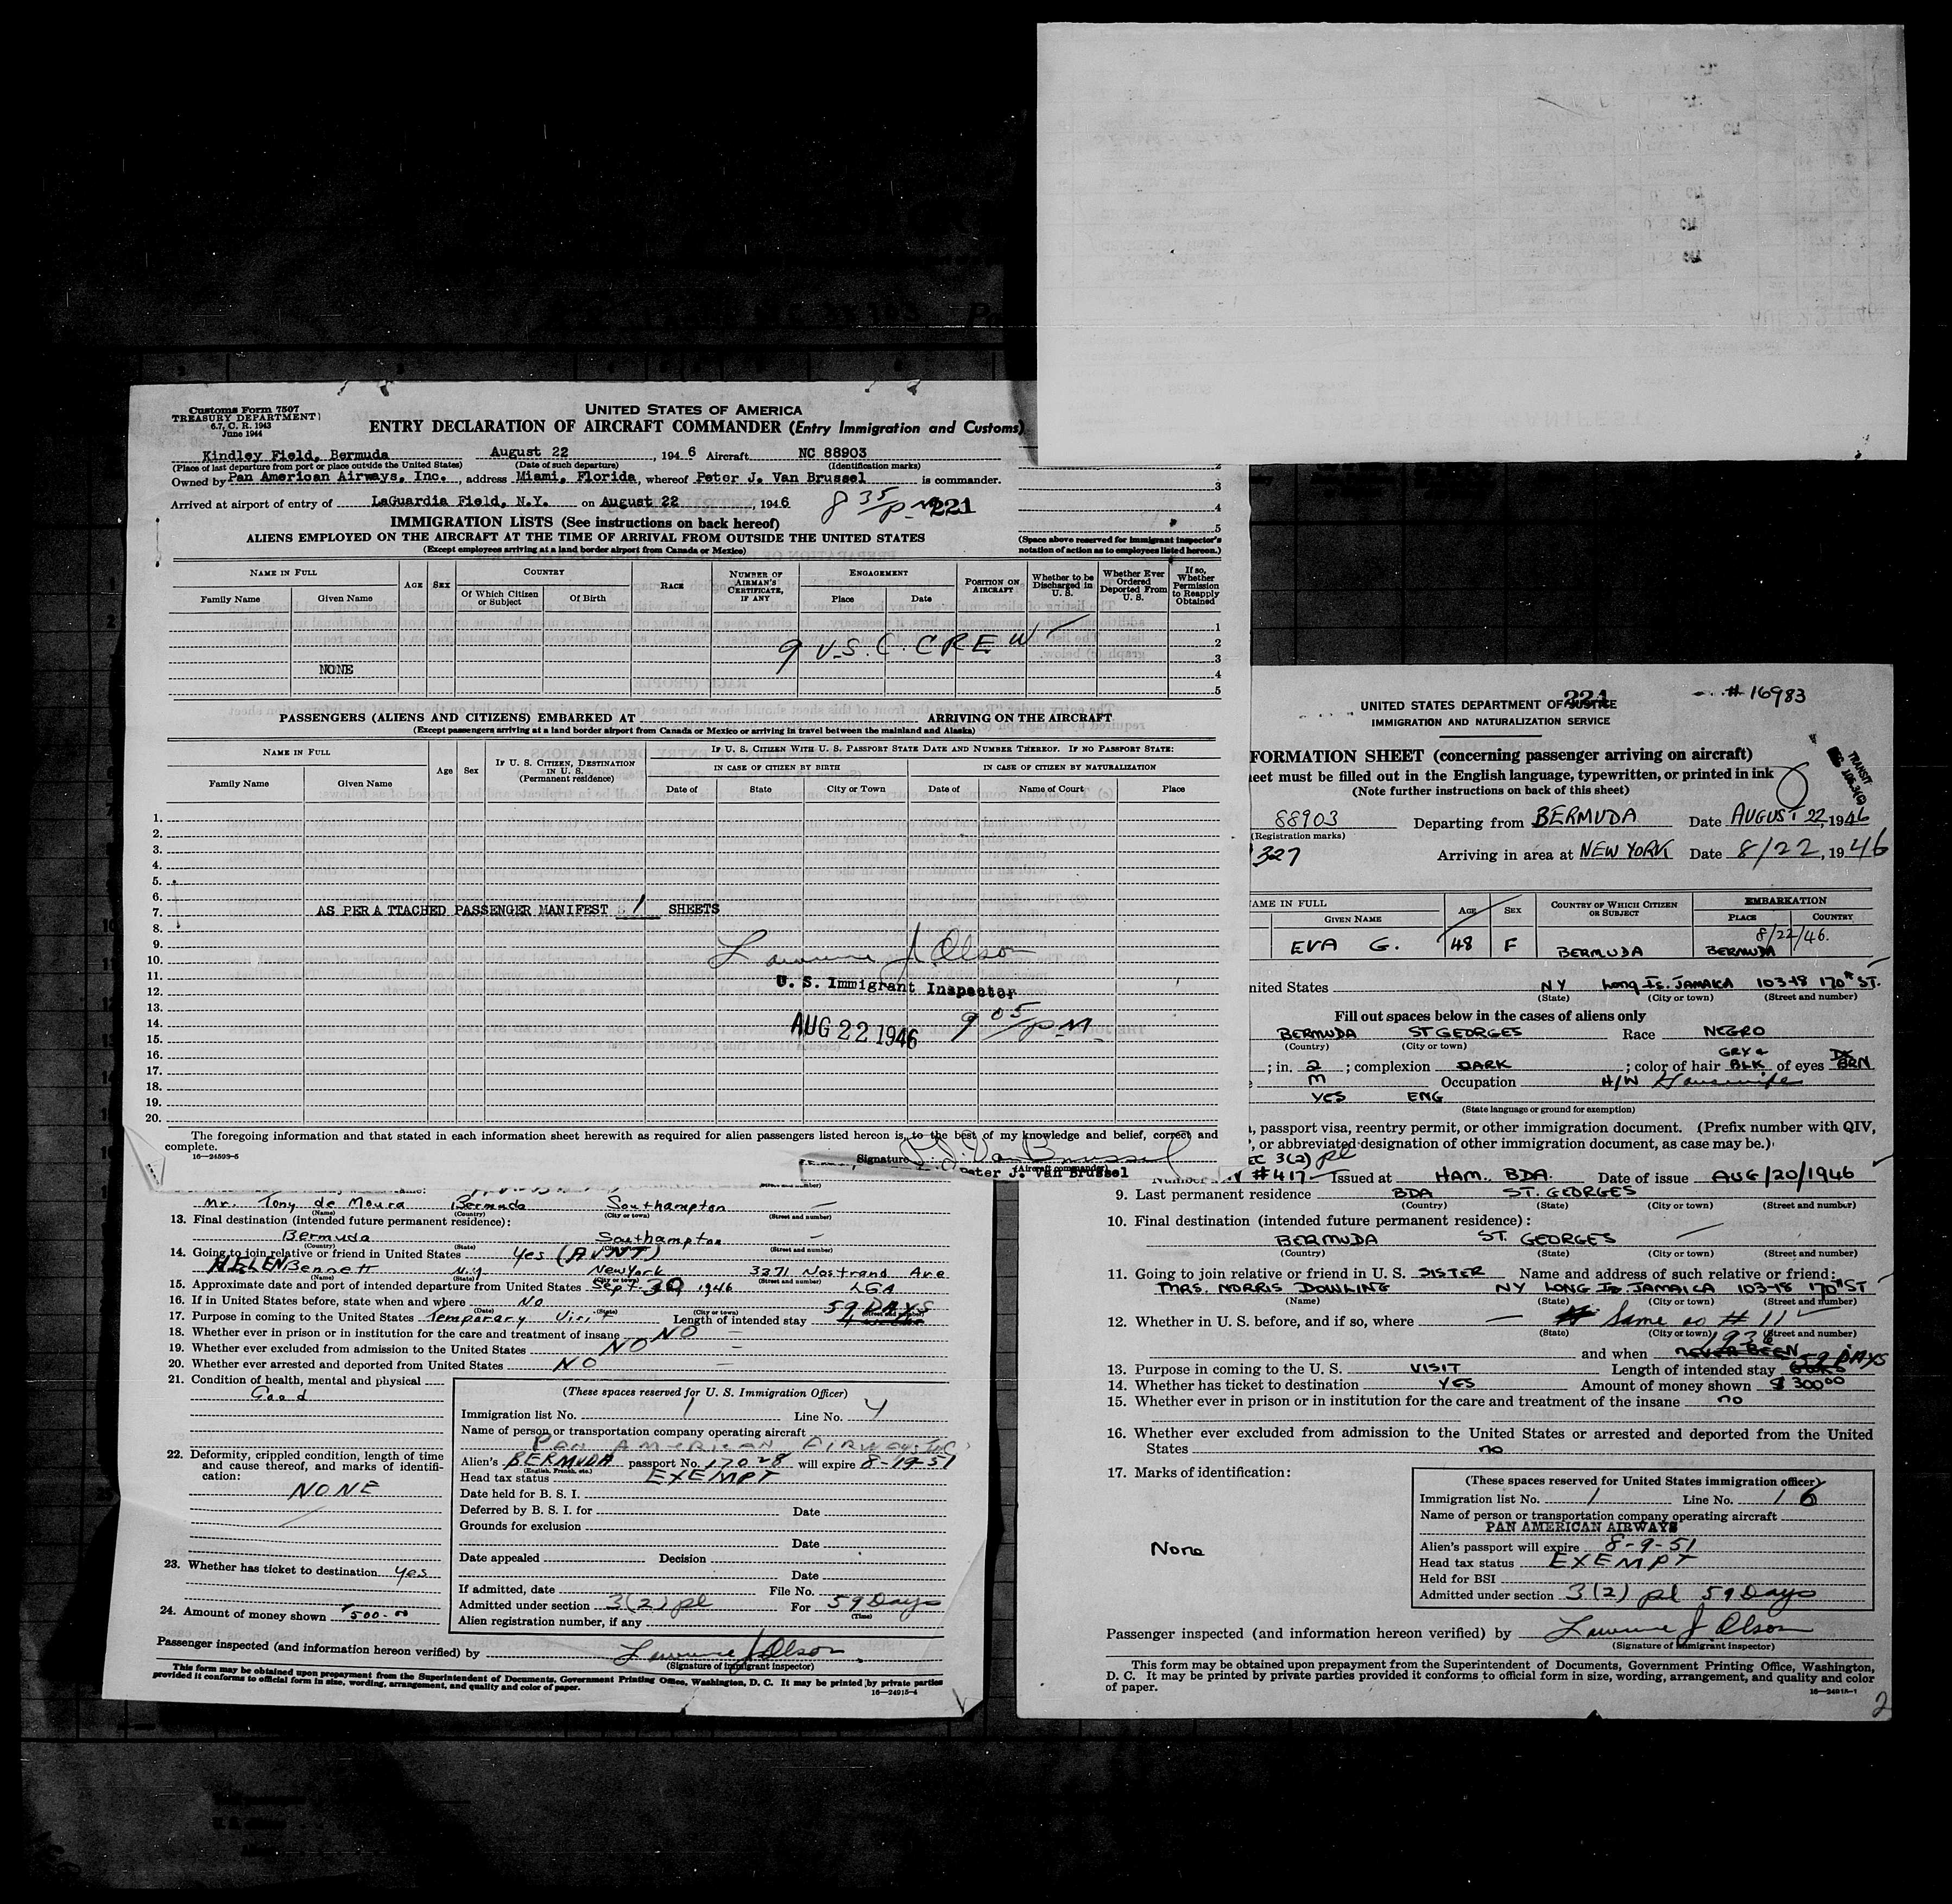 Customs Form 7507
TREASURY DEPARTMENT
6.7, C. R. 1943
June 1944
UNITED STATES OF AMERICA
ENTRY DECLARATION OF AIRCRAFT COMMANDER (Entry Immigration and Customs)
Kindley Field, Bermuda August 22, 1946 Aircraft NC 88903
(Place of last departure from port or place outside the United States) (Date of such departure) (Identification marks)
Owned by Pan American Airways, Inc., address Miami, Florida, whereof Peter J. Van Brussel is commander.
Arrived at airport of entry of LaGuardia Field, N.Y. on August 22, 1946 8 35/PM 221
IMMIGRATION LISTS (See instructions on back hereof)
ALIENS EMPLOYED ON THE AIRCRAFT AT THE TIME OF ARRIVAL FROM OUTSIDE THE UNITED STATES
(Except employees arriving at a land border airport from Canada or Mexico)
2
3
4
5
(Space above reserved for immigrant inspector's
notation of action as to employees listed hereon.)
NAME IN FULL AGE SEX COUNTRY RACE NUMBER OF AIRMAN'S CERTIFICATE, IF ANY ENGAGEMENT POSITION ON AIRCRAFT Whether to be Discharged in U. S. Whether Ever Ordered Deported From U. S. If so, Whether Permission to Reapply Obtained
Family Name Given Name Of Which Citizen or Subject Of Birth Place Date
1
9 U.S.C. CREW 2
3
NONE 4
5
PASSENGERS (ALIENS AND CITIZENS) EMBARKED AT ARRIVING ON THE AIRCRAFT
(Except passengers arriving at a land border airport from Canada or Mexico or arriving in travel between the mainland and Alaska)
NAME IN FULL Age Sex IF U. S. CITIZEN, DESTINATION IN U. S. (Permanent residence) IF U. S. CITIZEN WITH U. S. PASSPORT STATE DATE AND NUMBER THEREOF. IF NO PASSPORT STATE:
IN CASE OF CITIZEN BY BIRTH IN CASE OF CITIZEN BY NATURALIZATION
Family Name Given Name Date of State City or Town Date of Name of Court Place
1.
2.
3.
4.
5.
6.
7. AS PER ATTACHED PASSENGER MANIFEST 1 SHEETS
8.
9. Lawrence J. Olson
10.
11.
12. U. S. Immigrant Inspector
13.
14. AUG 22 1946 9 05/PM
15.
16.
17.
18.
19.
20.
The foregoing information and that stated in each information sheet herewith as required for alien passengers listed hereon is, to the best of my knowledge and belief, correct and
complete.
16—24593-5
Signature P. J. Van Brussel
(Aircraft commander)
Peter J. Van Brussel
Mr. Tony de Moura Bermuda Southampton —
(Name) (Country) (City or town) (Street and number)
13. Final destination (intended future permanent residence):
Bermuda Southampton —
(Country) (State) (City or town) (Street and number)
14. Going to join relative or friend in United States Yes (AUNT)
HELEN Bennett N.Y. New York 3271 Nostrand Ave
(Name) (State) (City or town) (Street and number)
15. Approximate date and port of intended departure from United States Sept. 30 1946 LGA
16. If in United States before, state when and where No
(Date) (State) (City or town) (Street and number)
17. Purpose in coming to the United States Temporary Visit Length of intended stay 59 DAYS
18. Whether ever in prison or in institution for the care and treatment of insane NO —
19. Whether ever excluded from admission to the United States NO
20. Whether ever arrested and deported from United States NO —
21. Condition of health, mental and physical
Good
22. Deformity, crippled condition, length of time
and cause thereof, and marks of identifi-
cation:
NONE
23. Whether has ticket to destination yes
24. Amount of money shown $500.00
(These spaces reserved for U. S. Immigration Officer)
Immigration list No. 1 Line No. 4
Name of person or transportation company operating aircraft
PAN AMERICAN AIRWAYS INC.
Alien's BERMUDA passport No. 17028 will expire 8-19-51
(English, French, etc.)
Head tax status EXEMPT
Date held for B. S. I.
Deferred by B. S. I. for Date
Grounds for exclusion
Date
Date appealed Decision
Date
If admitted, date File No.
Admitted under section 3(2) pl For 59 Days
(Time)
Alien registration number, if any
Passenger inspected (and information hereon verified) by Lawrence J Olson
(Signature of immigrant inspector)
This form may be obtained upon prepayment from the Superintendent of Documents, Government Printing Office, Washington, D. C. It may be printed by private parties
provided it conforms to official form in size, wording, arrangement, and quality and color of paper.
16—24915-4
# 16983
UNITED STATES DEPARTMENT OF JUSTICE 221
IMMIGRATION AND NATURALIZATION SERVICE
FORMATION SHEET (concerning passenger arriving on aircraft)
eet must be filled out in the English language, typewritten, or printed in ink
(Note further instructions on back of this sheet)
TRANSIT
88903 Departing from BERMUDA Date AUGUST 22, 1946
(Registration marks)
327 Arriving in area at NEW YORK Date 8/22, 1946
NAME IN FULL AGE SEX COUNTRY OF WHICH CITIZEN OR SUBJECT EMBARKATION
GIVEN NAME PLACE COUNTRY
8/22/46.
EVA G. 48 F BERMUDA BERMUDA
nited States NY Long Is. JAMAICA 103-18 170th ST.
(State) (City or town) (Street and number)
Fill out spaces below in the cases of aliens only
BERMUDA ST GEORGES Race NEGRO
(Country) (City or town)
; in. 2 ; complexion DARK ; color of hair GRY & BLK of eyes DK BRN
M Occupation H/W Housewife
YES ENG
(State language or ground for exemption)
, passport visa, reentry permit, or other immigration document. (Prefix number with QIV,
, or abbreviated designation of other immigration document, as case may be.)
EC 3(2) pl
Number #417 Issued at HAM. BDA. Date of issue AUG/20/1946
9. Last permanent residence BDA ST. GEORGES
(Country) (State) (City or town) (Street and number)
10. Final destination (intended future permanent residence):
BERMUDA ST. GEORGES —
(Country) (State) (City or town) (Street and number)
11. Going to join relative or friend in U. S. SISTER Name and address of such relative or friend:
MRS. NORRIS DOWLING NY LONG IS. JAMAICA 103-18 170th ST
(Name) (State) (City or town) (Street and number)
12. Whether in U. S. before, and if so, where — Same as # 11
(State) (City or town) (Street and number)
and when NEVER BEEN 1936
13. Purpose in coming to the U. S. VISIT Length of intended stay 59 DAYS
14. Whether has ticket to destination YES Amount of money shown $ 300.00
15. Whether ever in prison or in institution for the care and treatment of the insane no
16. Whether ever excluded from admission to the United States or arrested and deported from the United
States no
17. Marks of identification:
None
(These spaces reserved for United States immigration officer)
Immigration list No. 1 Line No. 16
Name of person or transportation company operating aircraft
PAN AMERICAN AIRWAYS
Alien's passport will expire 8-9-51
Head tax status EXEMPT
Held for BSI
Admitted under section 3(2) pl 59 Days
Passenger inspected (and information hereon verified) by Lawrence J. Olson
(Signature of immigrant inspector)
This form may be obtained upon prepayment from the Superintendent of Documents, Government Printing Office, Washington,
D. C. It may be printed by private parties provided it conforms to official form in size, wording, arrangement, and quality and color
of paper.
16—24915-1
2